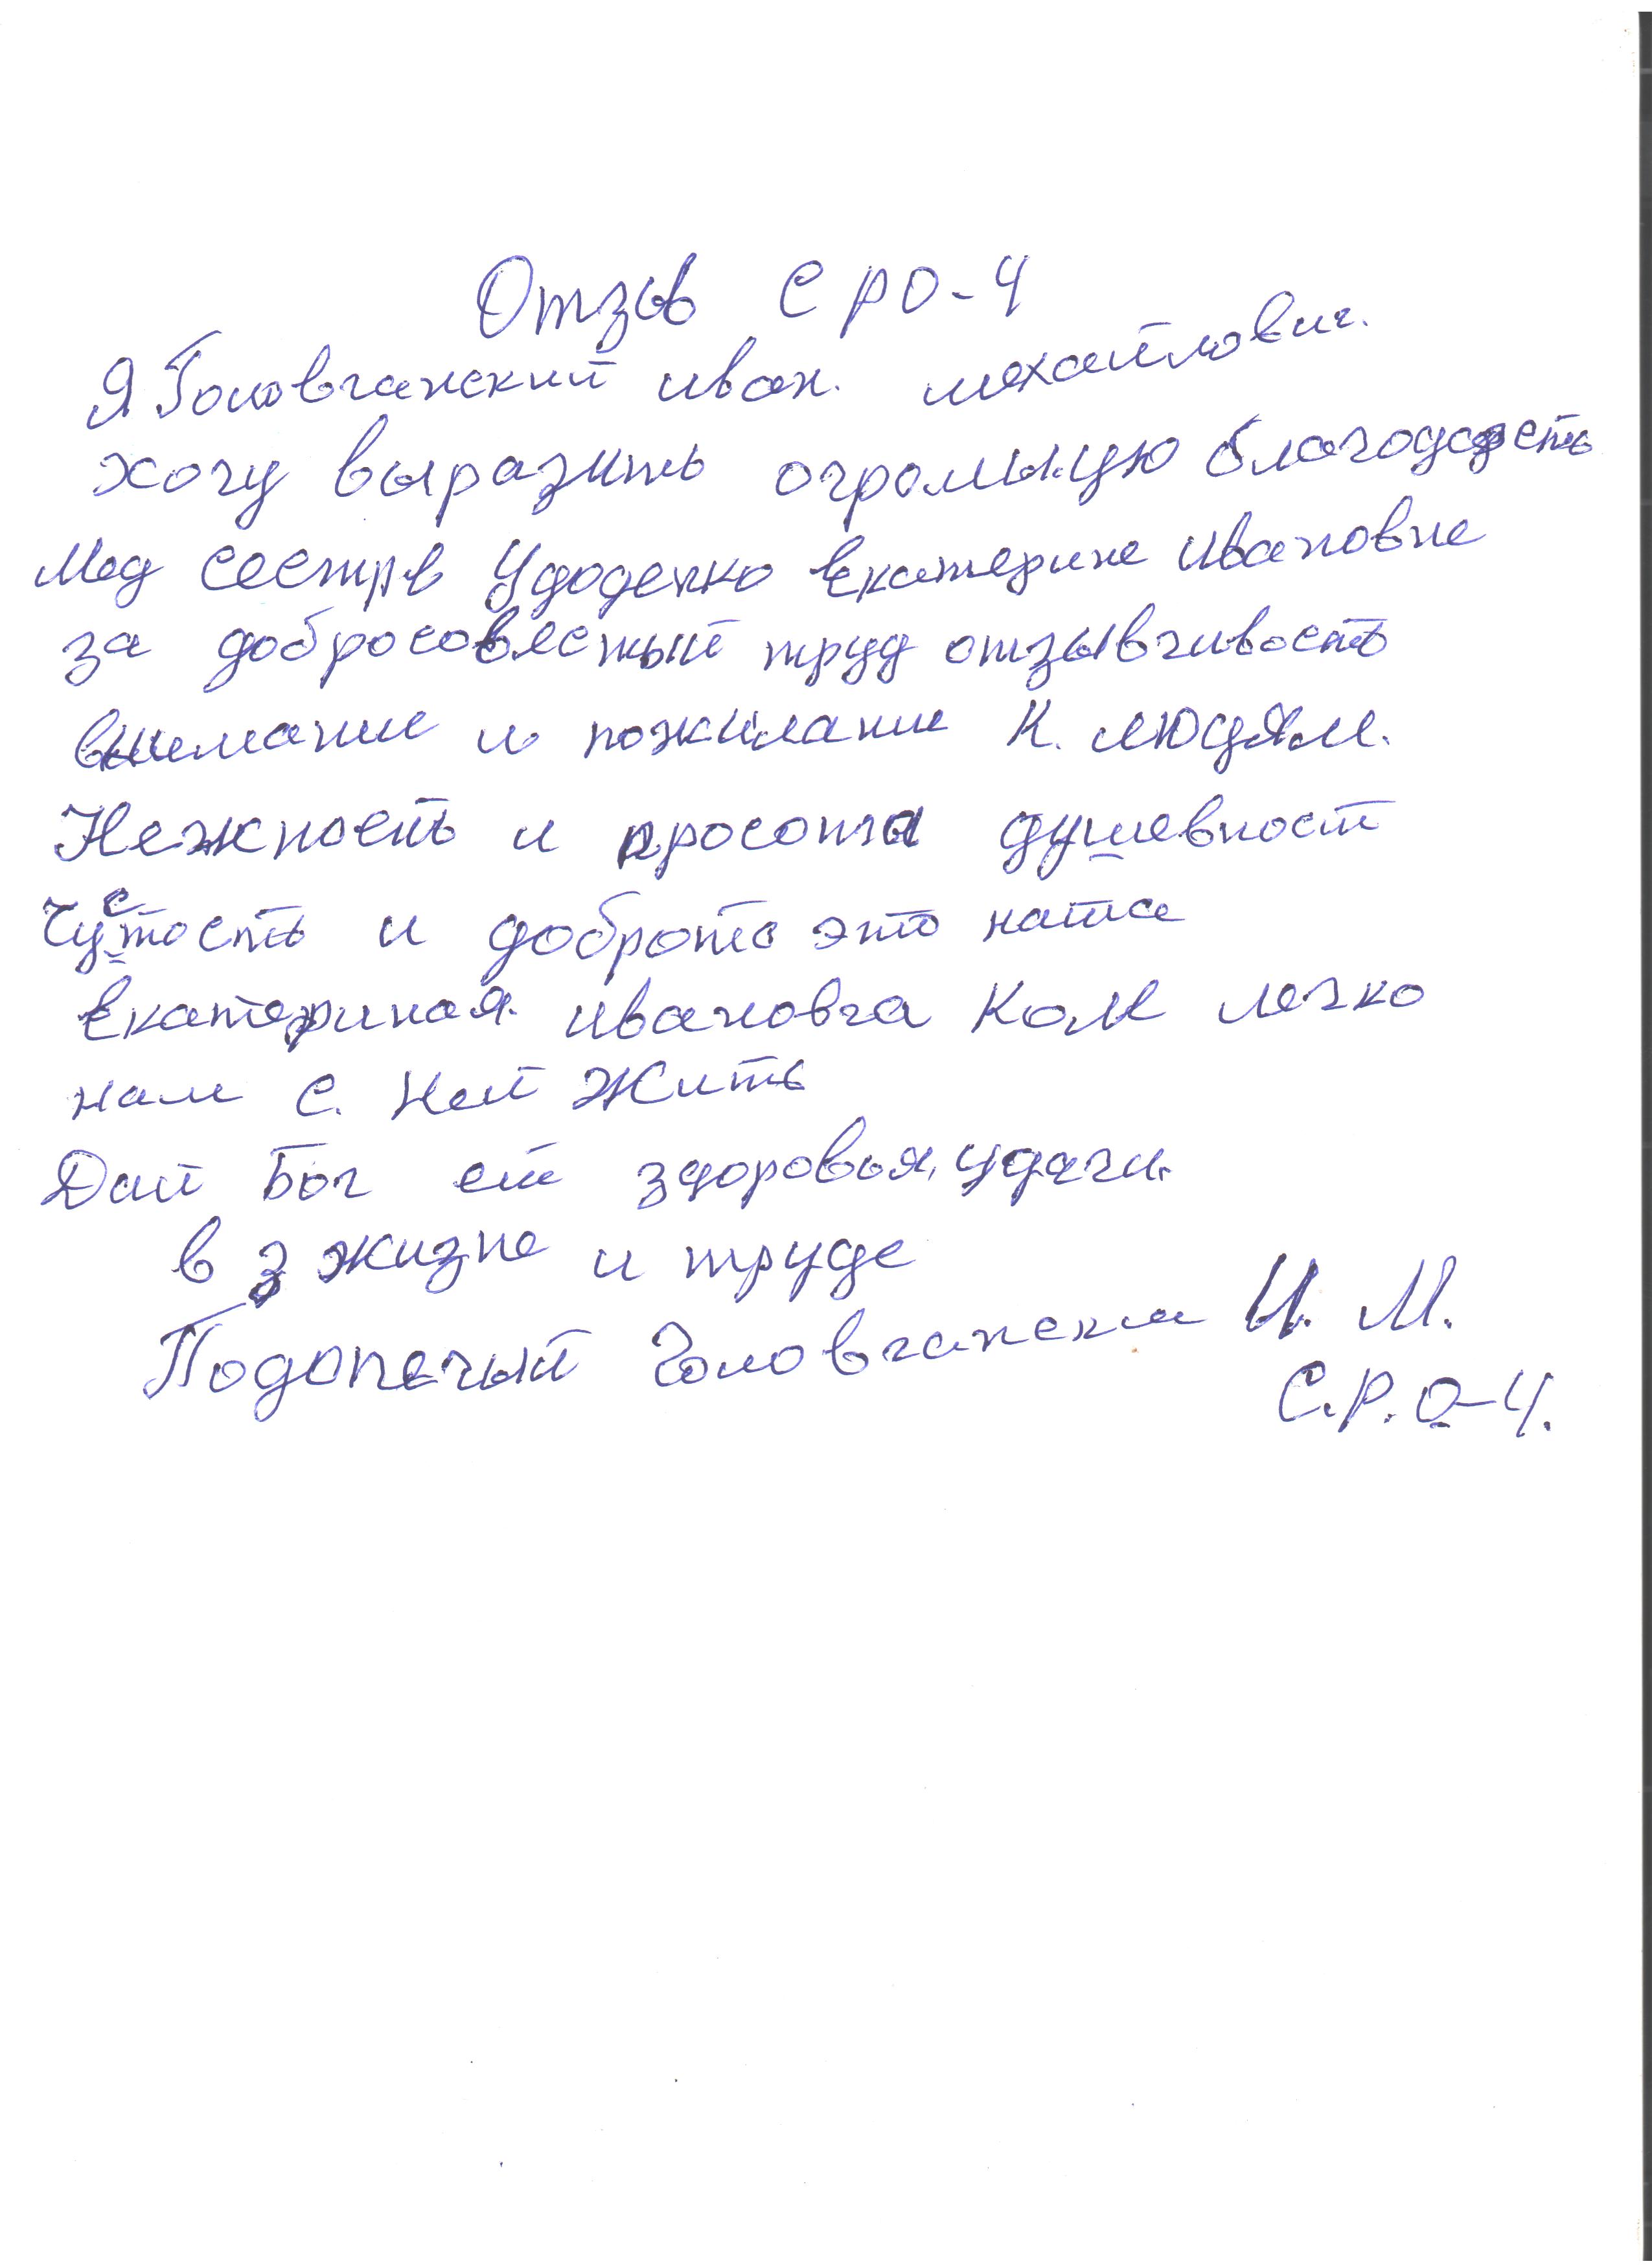 Отзыв СРО-4
Я Головчанский иван. михайлович.
хочу выразить огромную благододсть
Мед сестрв Удоденко Екатерине Ивановне
за добросовястный труд отзывчивость
внимание и пожилание К. людям.
Нежность и просота душевност
Чустость и доброта это наша
Екатериная. ивановна Как легко
нам с. Ней Жить
Дай Бог ей здоровья, удачи.
в з жизне и труде
Подопечный Головчански И. М.
С.Р.О-4.